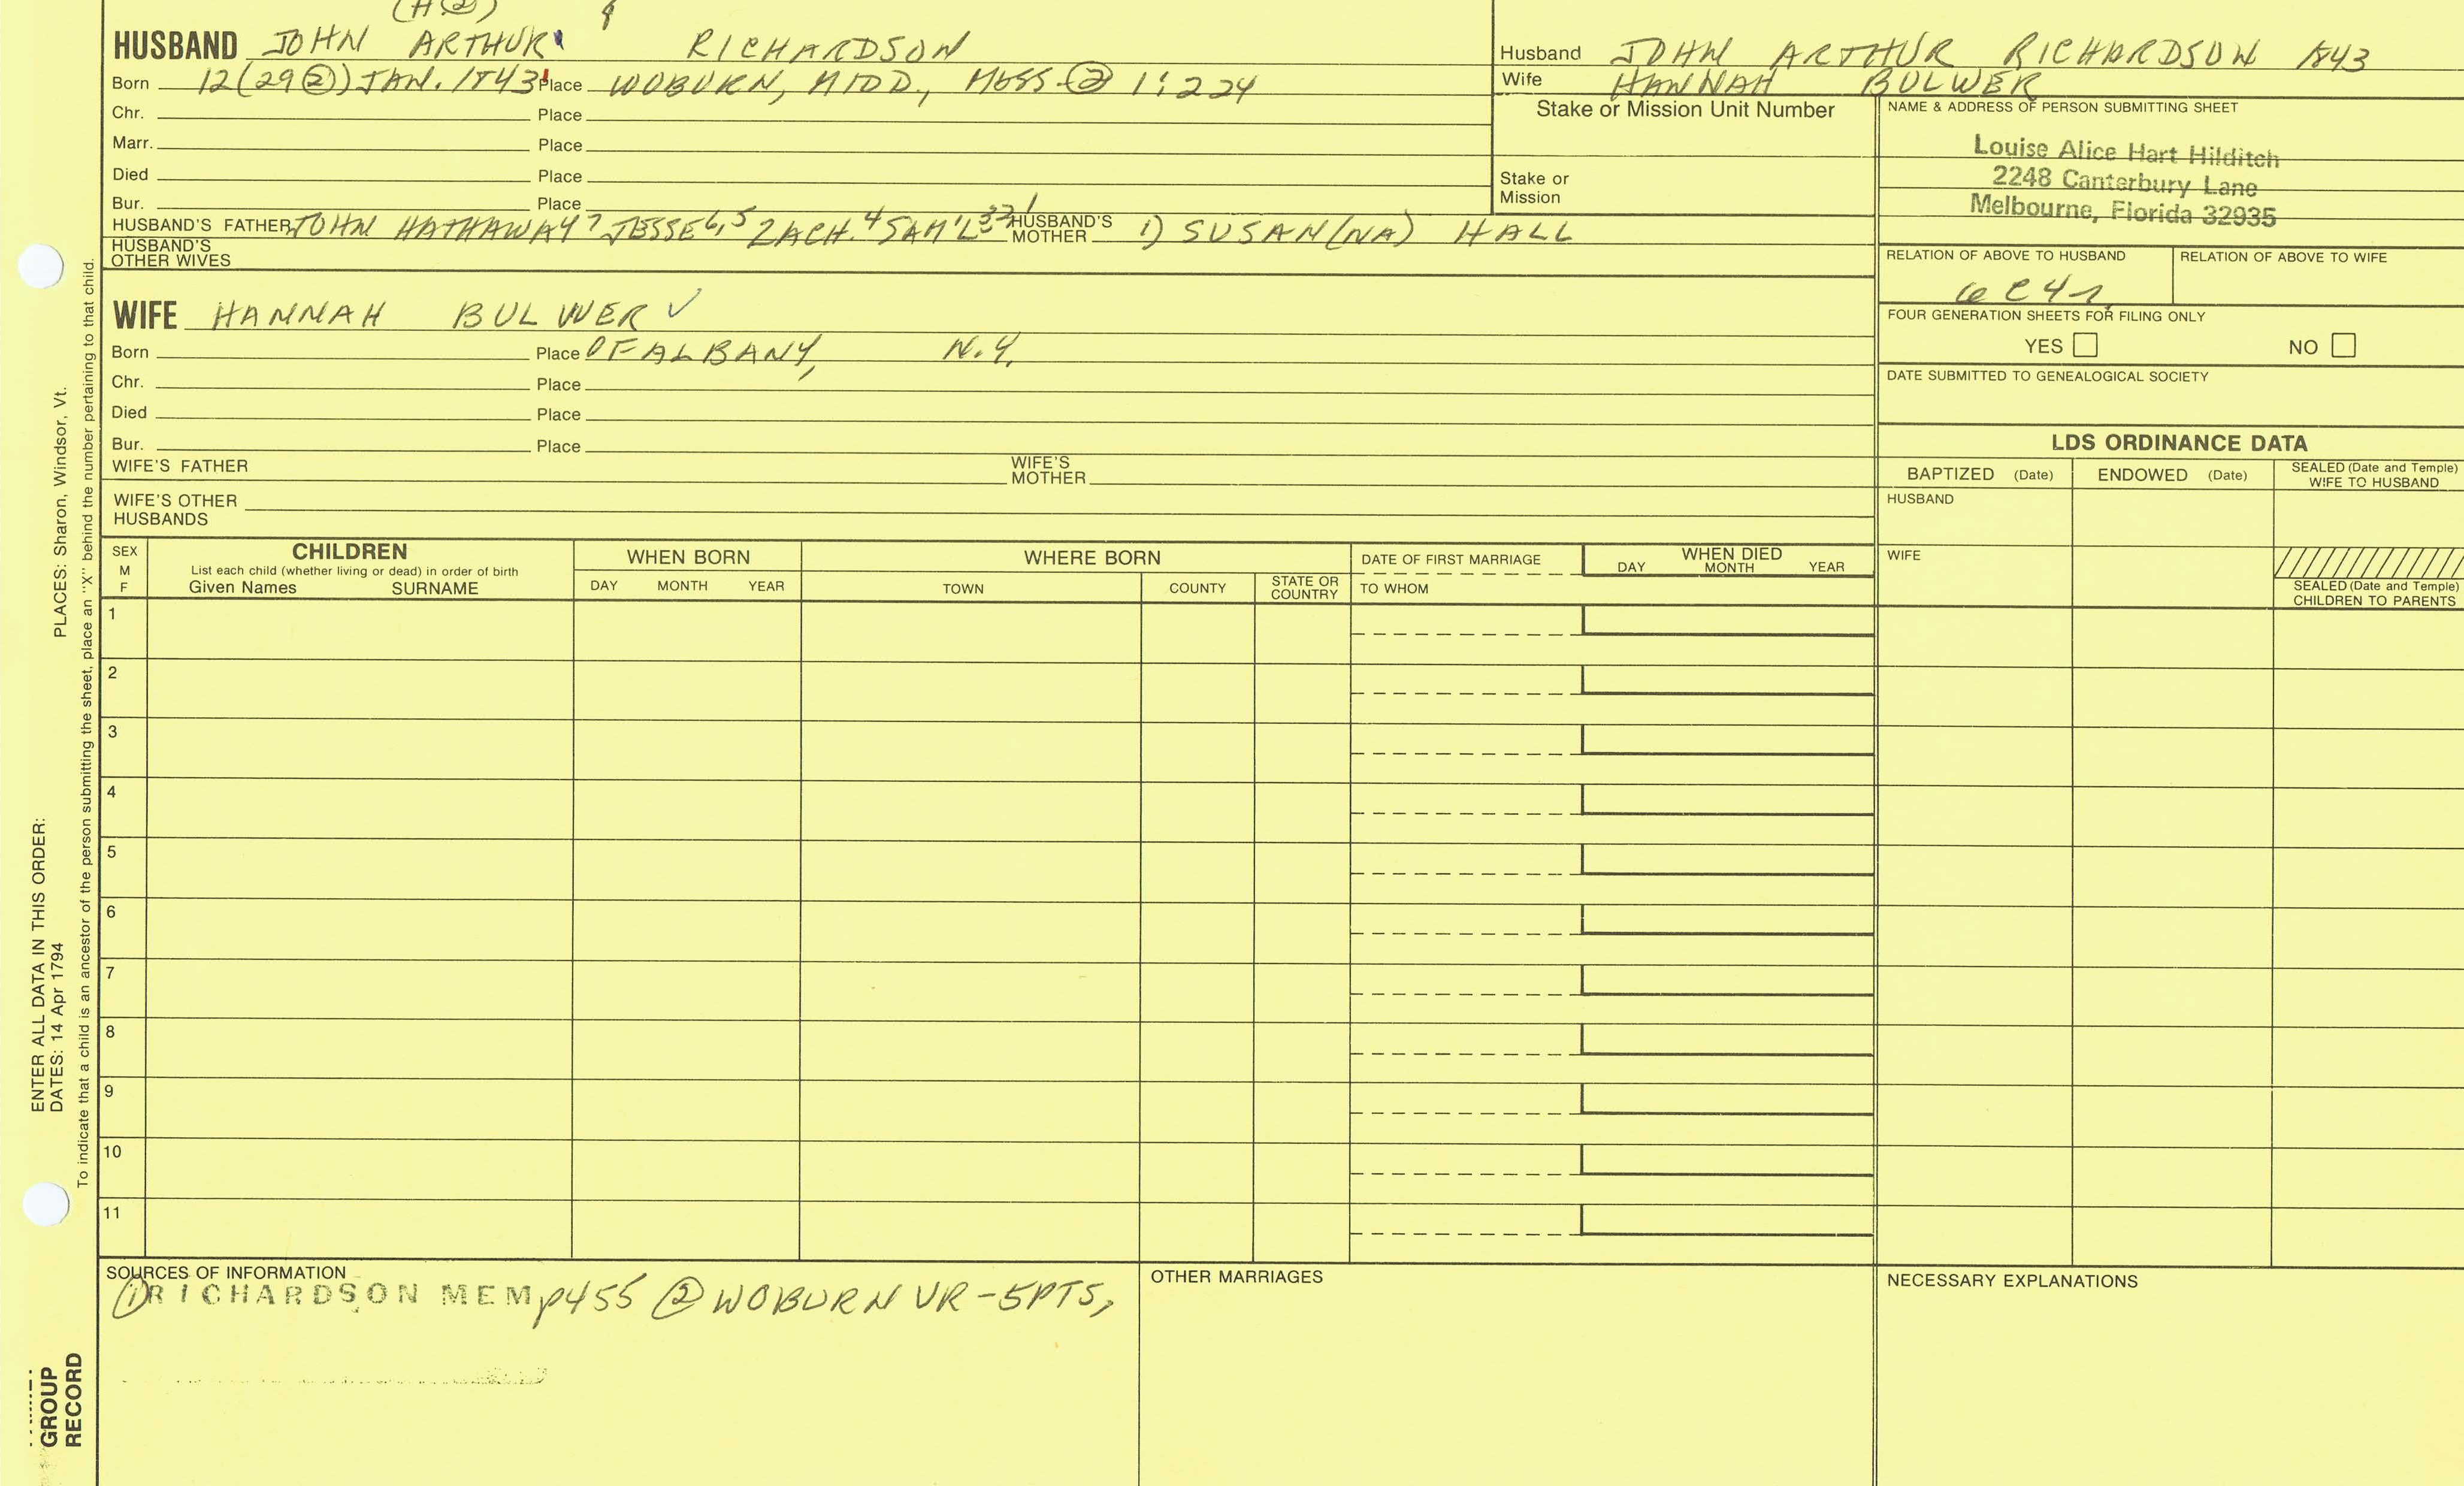 (H②)
HUSBAND JOHN ARTHUR RICHARDSON
Born 12(29②) JAN. 1843 Place WOBURN, MIDD., MASS ② 1:224
Chr. Place
Marr. Place
Died Place
Bur. Place
HUSBAND'S FATHER JOHN HATHAWAY 7 JESSE 6,5 ZACH. 4 SAM'L 3 2 1 HUSBAND'S MOTHER 1) SUSAN(NA) HALL
HUSBAND'S OTHER WIVES
WIFE HANNAH BULWER ✓
Born Place OF ALBANY, N.Y.
Chr. Place
Died Place
Bur. Place
WIFE'S FATHER WIFE'S MOTHER
WIFE'S OTHER HUSBANDS
Husband JOHN ARTHUR RICHARDSON 1843
Wife HANNAH BULWER
Stake or Mission Unit Number
Stake or
Mission
NAME & ADDRESS OF PERSON SUBMITTING SHEET
Louise Alice Hart Hilditch
2248 Canterbury Lane
Melbourne, Florida 32935
RELATION OF ABOVE TO HUSBAND RELATION OF ABOVE TO WIFE
FOUR GENERATION SHEETS FOR FILING ONLY
YES NO
DATE SUBMITTED TO GENEALOGICAL SOCIETY
LDS ORDINANCE DATA
BAPTIZED (Date) ENDOWED (Date) SEALED (Date and Temple) WIFE TO HUSBAND
HUSBAND
WIFE
SEALED (Date and Temple)
CHILDREN TO PARENTS
SEX
M
F
CHILDREN
List each child (whether living or dead) in order of birth
Given Names SURNAME
WHEN BORN
DAY MONTH YEAR
WHERE BORN
TOWN COUNTY STATE OR COUNTRY
DATE OF FIRST MARRIAGE
TO WHOM
WHEN DIED
DAY MONTH YEAR
1
2
3
4
5
6
7
8
9
10
11
SOURCES OF INFORMATION
① RICHARDSON MEM p455 ② WOBURN VR - 5PTS,
OTHER MARRIAGES
NECESSARY EXPLANATIONS
ENTER ALL DATA IN THIS ORDER:
DATES: 14 Apr 1794
PLACES: Sharon, Windsor, Vt.
To indicate that a child is an ancestor of the person submitting the sheet, place an "X" behind the number pertaining to that child.
GROUP
RECORD